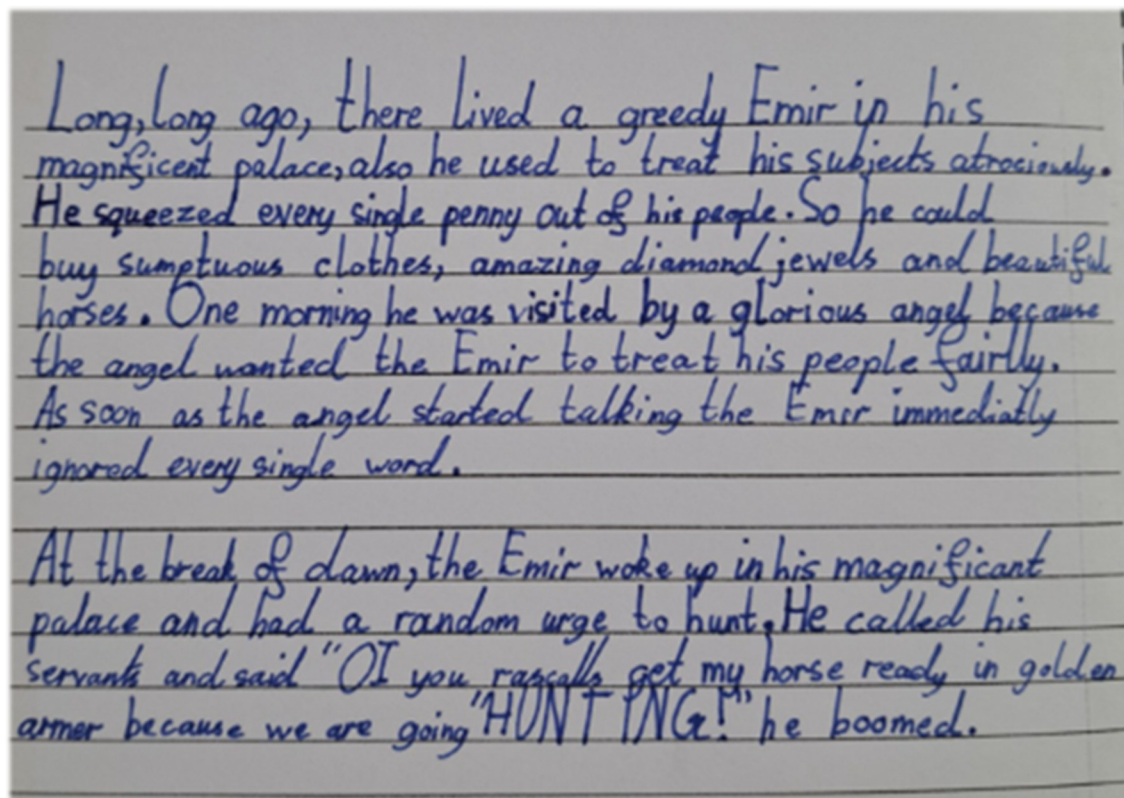 Long, long ago, there lived a greedy Emir in his
magnificent palace, also he used to treat his subjects atrociously.
He squeezed every single penny out of his people. So he could
buy sumptuous clothes, amazing diamond jewels and beautiful
horses. One morning he was visited by a glorious angel because
the angel wanted the Emir to treat his people fairly.
As soon as the angel started talking the Emir immediatly
ignored every single word.
At the break of dawn, the Emir woke up in his magnificant
palace and had a random urge to hunt. He called his
servants and said "OI you rascalls get my horse ready in golden
armer because we are going "HUNTING!" he boomed.